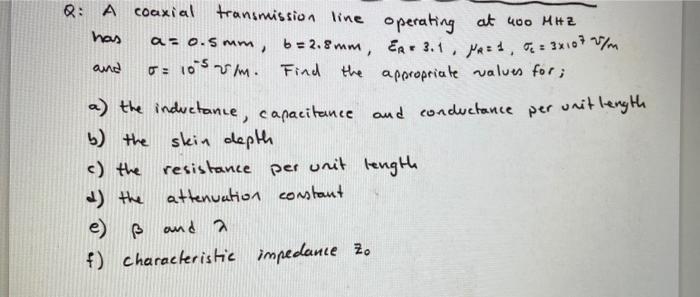 Q: A coaxial transmission line operating at 400 MHz
has a = 0.5mm, b = 2.8mm, εR = 3.1, μR = 1, σc = 3x10⁷ ℧/m
and σ = 10⁻⁵ ℧/m. Find the appropriate values for;
a) the inductance, capacitance and conductance per unit length
b) the skin depth
c) the resistance per unit length
d) the attenuation constant
e) β and λ
f) characteristic impedance Z₀